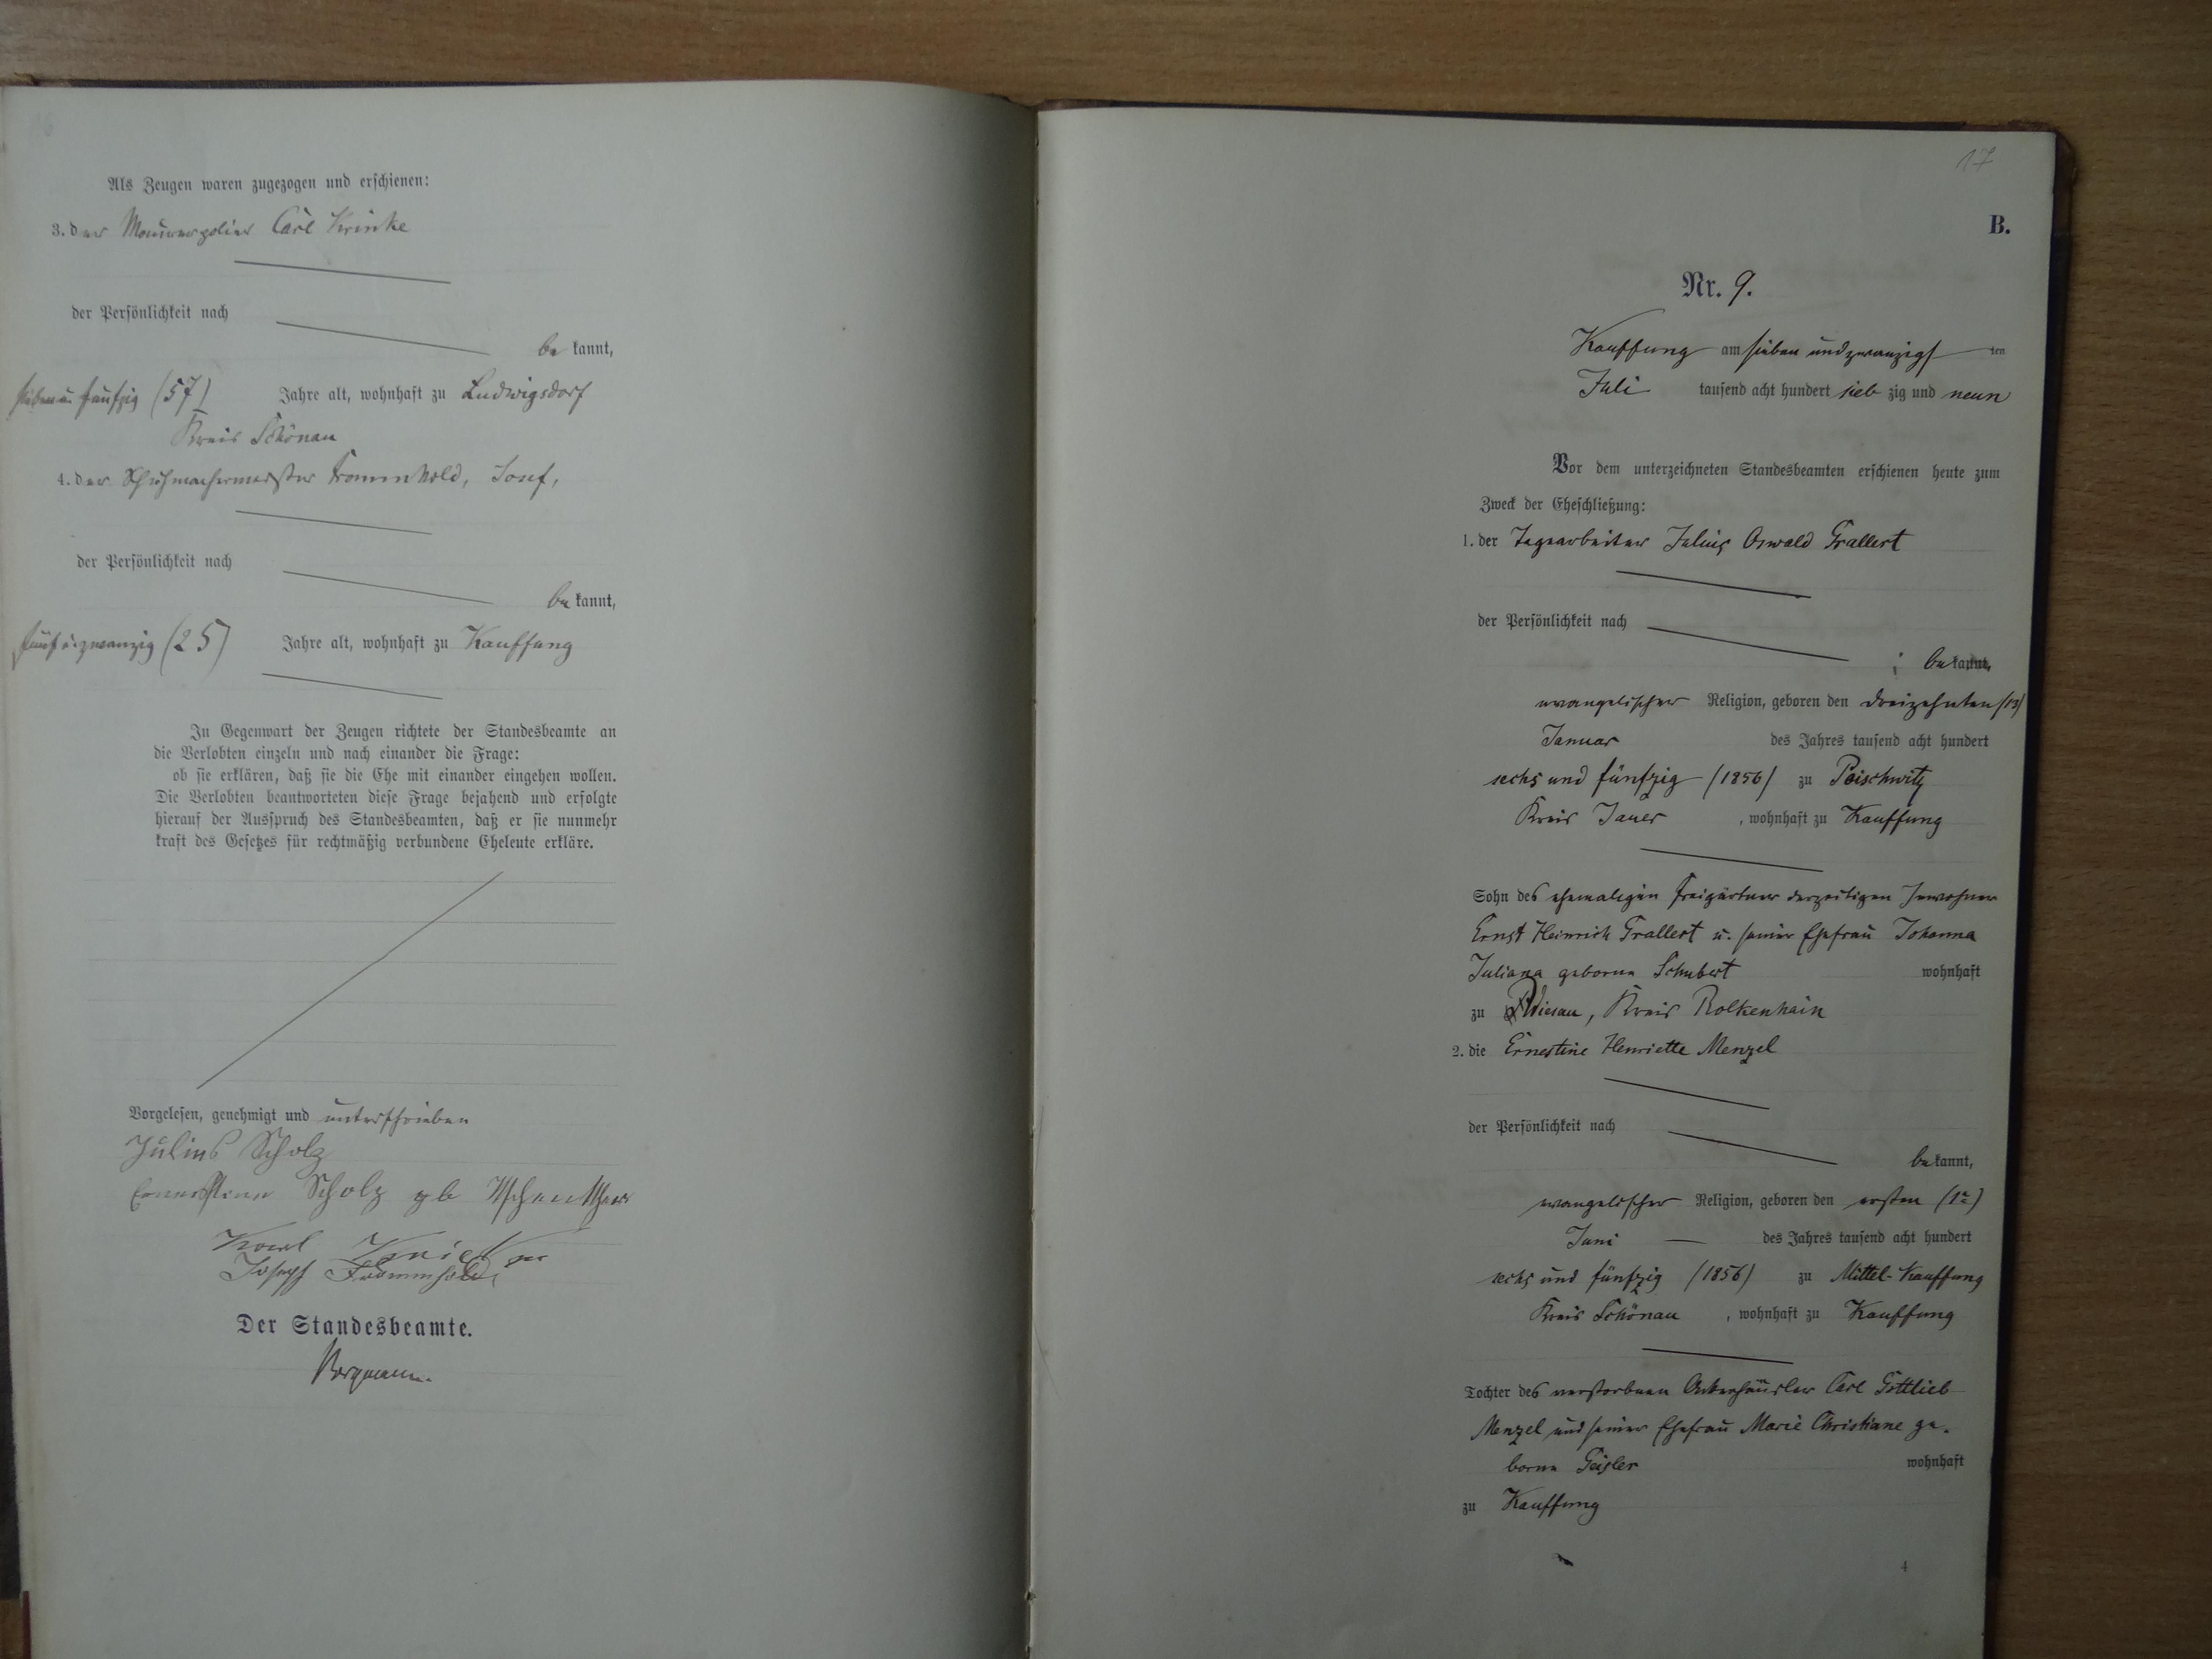 Als Zeugen waren zugezogen und erschienen:
3. der Maurerpolier Carl Krinke
der Persönlichkeit nach
be kannt,
sieben u. fünfzig (57) Jahre alt, wohnhaft zu Ludwigsdorf
Kreis Schönau
4. der Schuhmachermeister Frommhold, Josef,
der Persönlichkeit nach
be kannt,
fünf u. zwanzig (25) Jahre alt, wohnhaft zu Kauffung
In Gegenwart der Zeugen richtete der Standesbeamte an
die Verlobten einzeln und nach einander die Frage:
ob sie erklären, daß sie die Ehe mit einander eingehen wollen.
Die Verlobten beantworteten diese Frage bejahend und erfolgte
hierauf der Ausspruch des Standesbeamten, daß er sie nunmehr
kraft des Gesetzes für rechtmäßig verbundene Eheleute erkläre.
Vorgelesen, genehmigt und unterschrieben
Julius Scholz
Ernestine Scholz gb
Karl
Joseph Frommhold,
Der Standesbeamte.
Bergmann.
17
B.
Nr. 9.
Kauffung am sieben und zwanzigsten
Juli tausend acht hundert sieb zig und neun
Vor dem unterzeichneten Standesbeamten erschienen heute zum
Zweck der Eheschließung:
1. der Tagearbeiter Julius Oswald Grallert
der Persönlichkeit nach
be kannt,
evangelischer Religion, geboren den dreizehnten (13)
Januar des Jahres tausend acht hundert
sechs und fünfzig (1856) zu Peischwitz
Kreis Jauer, wohnhaft zu Kauffung
Sohn des ehemaligen Freigärtner derzeitigen Inwohner
Ernst Heinrich Grallert u. seiner Ehefrau Johanna
Juliana geborne Schubert wohnhaft
zu Wiesau, Kreis Bolkenhain
2. die Ernestine Henriette Menzel
der Persönlichkeit nach
be kannt,
evangelischer Religion, geboren den ersten (1te)
Juni des Jahres tausend acht hundert
sechs und fünfzig (1856) zu Mittel-Kauffung
Kreis Schönau, wohnhaft zu Kauffung
Tochter des verstorbnen Ackerhäusler Carl Gottlieb
Menzel und seiner Ehefrau Marie Christiane ge-
borne Geisler wohnhaft
zu Kauffung
4